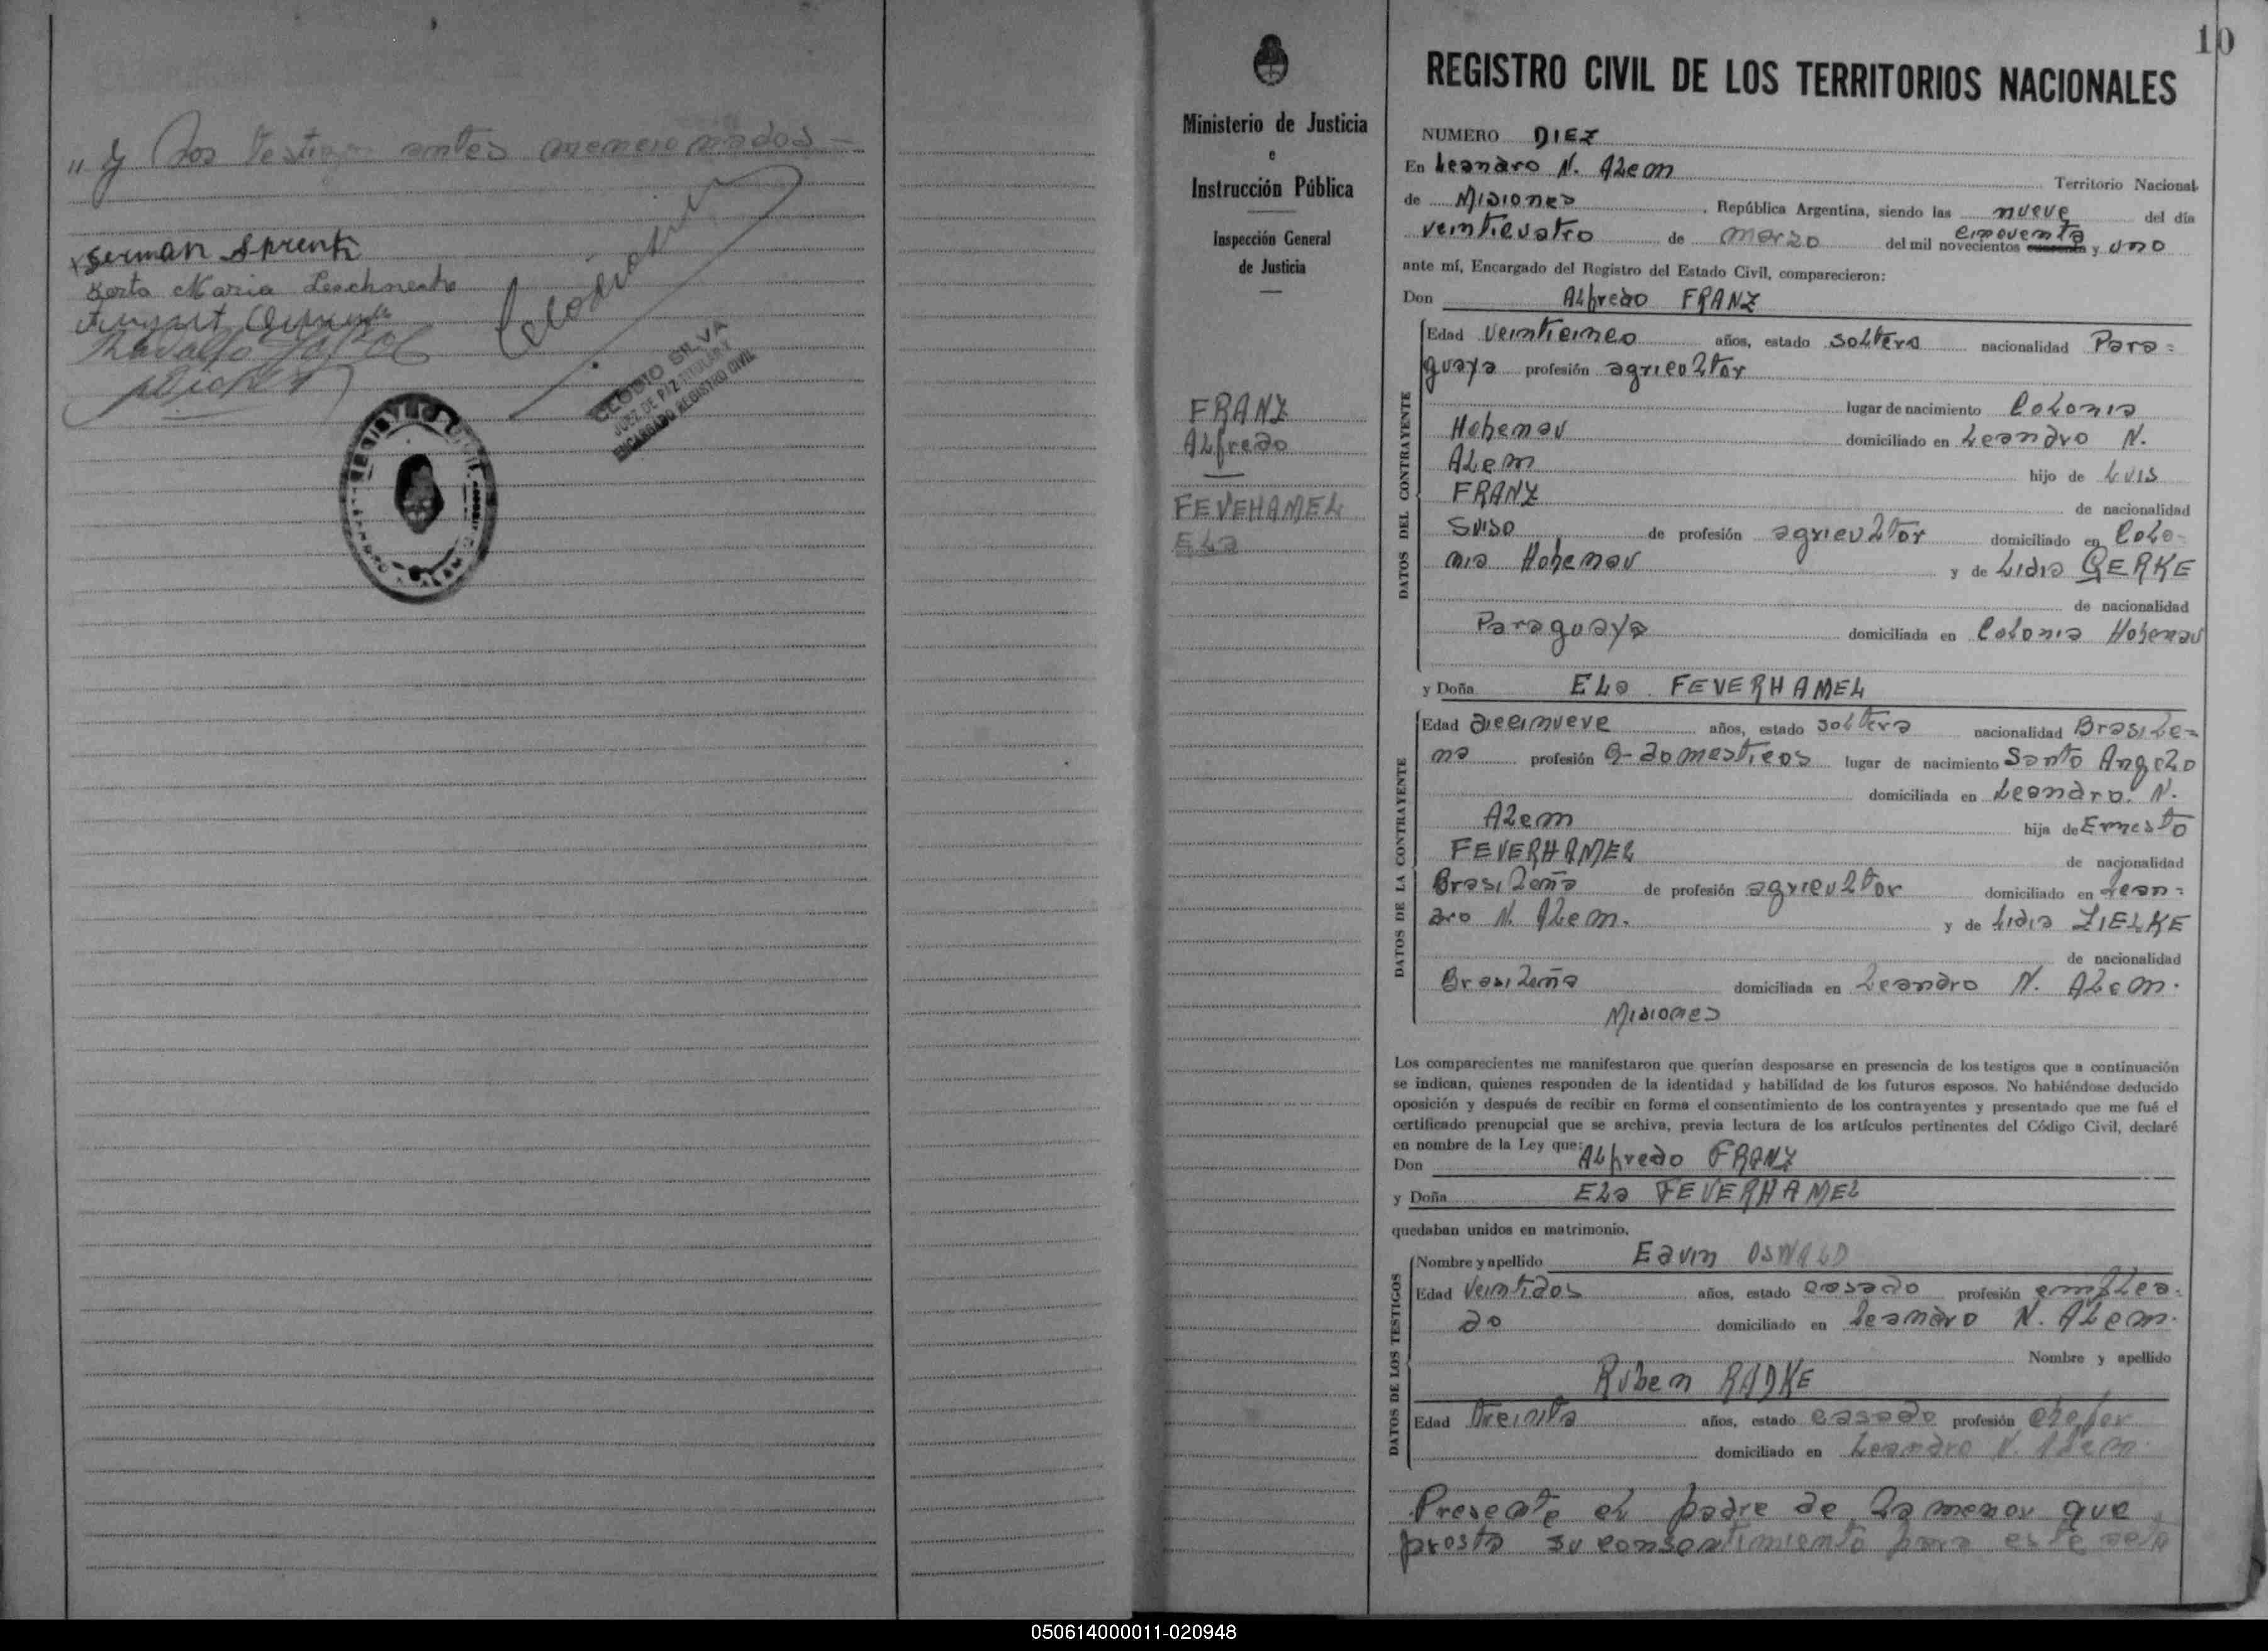 " y los testigos antes mencionados -
German Sprenk
Maria
CLODIO SILVA
JUEZ DE PAZ TITULAR Y
ENCARGADO REGISTRO CIVIL
10
Ministerio de Justicia
e
Instrucción Pública
Inspección General
de Justicia
FRANZ
Alfredo
FEVEHAMEL
Ela
REGISTRO CIVIL DE LOS TERRITORIOS NACIONALES
NUMERO DIEZ
En Leandro N. Alem Territorio Nacional
de Misiones, República Argentina, siendo las nueve del día
veinticuatro de marzo del mil novecientos cuarenta cincuenta y uno
ante mí, Encargado del Registro del Estado Civil, comparecieron:
Don Alfredo FRANZ
DATOS DEL CONTRAYENTE
Edad veinticinco años, estado soltero nacionalidad Para=
guaya profesión agricultor
lugar de nacimiento Colonia
Hohenau domiciliado en Leandro N.
Alem hijo de Luis
FRANZ de nacionalidad
Suiso de profesión agricultor domiciliado en Colo-
nia Hohenau y de Lidia GERKE
de nacionalidad
Paraguaya domiciliada en Colonia Hohenau
y Doña Ela FEVERHAMEL
DATOS DE LA CONTRAYENTE
Edad diecinueve años, estado soltera nacionalidad Brasile=
na profesión Q-domesticos lugar de nacimiento Santo Angelo
domiciliada en Leandro. N.
Alem hija de Ernesto
FEVERHAMEL de nacionalidad
Brasileña de profesión agricultor domiciliado en Lean=
dro N. Alem. y de Lidia ZIELKE
de nacionalidad
Brasileña domiciliada en Leandro N. Alem.
Misiones
Los comparecientes me manifestaron que querían desposarse en presencia de los testigos que a continuación
se indican, quienes responden de la identidad y habilidad de los futuros esposos. No habiéndose deducido
oposición y después de recibir en forma el consentimiento de los contrayentes y presentado que me fué el
certificado prenupcial que se archiva, previa lectura de los artículos pertinentes del Código Civil, declaré
en nombre de la Ley que:
Don Alfredo FRANZ
y Doña Ela FEVERHAMEL
quedaban unidos en matrimonio.
DATOS DE LOS TESTIGOS
Nombre y apellido Edvin OSWALD
Edad veintidos años, estado casado profesión emplea-
do domiciliado en Leandro N. Alem.
Nombre y apellido
Ruben RADKE
Edad treinta años, estado casado profesión chofer
domiciliado en Leandro N. Alem.
Presente el padre de la menor que
presta su consentimiento para este acto
050614000011-020948